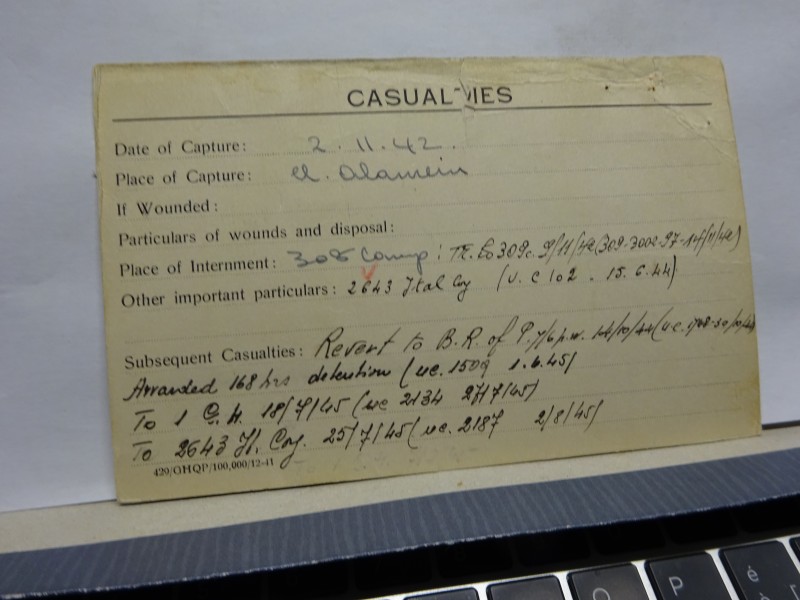 CASUALTIES
Date of Capture: 2.11.42.
Place of Capture: El. Alamein
If Wounded:
Particulars of wounds and disposal:
Place of Internment: 308 Camp: TR. to 309c 9/11/42 (309-3002-97-14/11/42)
Other important particulars: 2643 Ital Coy (U.C 102. 15.6.44)
Subsequent Casualties: Revert to B.R. of P. 14/10/44
Awarded 168 hrs detention (uc. 1509 1.6.45)
To 1 G. H. 18/7/45 (uc 2134 27/7/45)
To 2643 It. Coy. 25/7/45 (uc. 2187 2/8/45)
429/OHQP/100,000/12-41
O
P
é